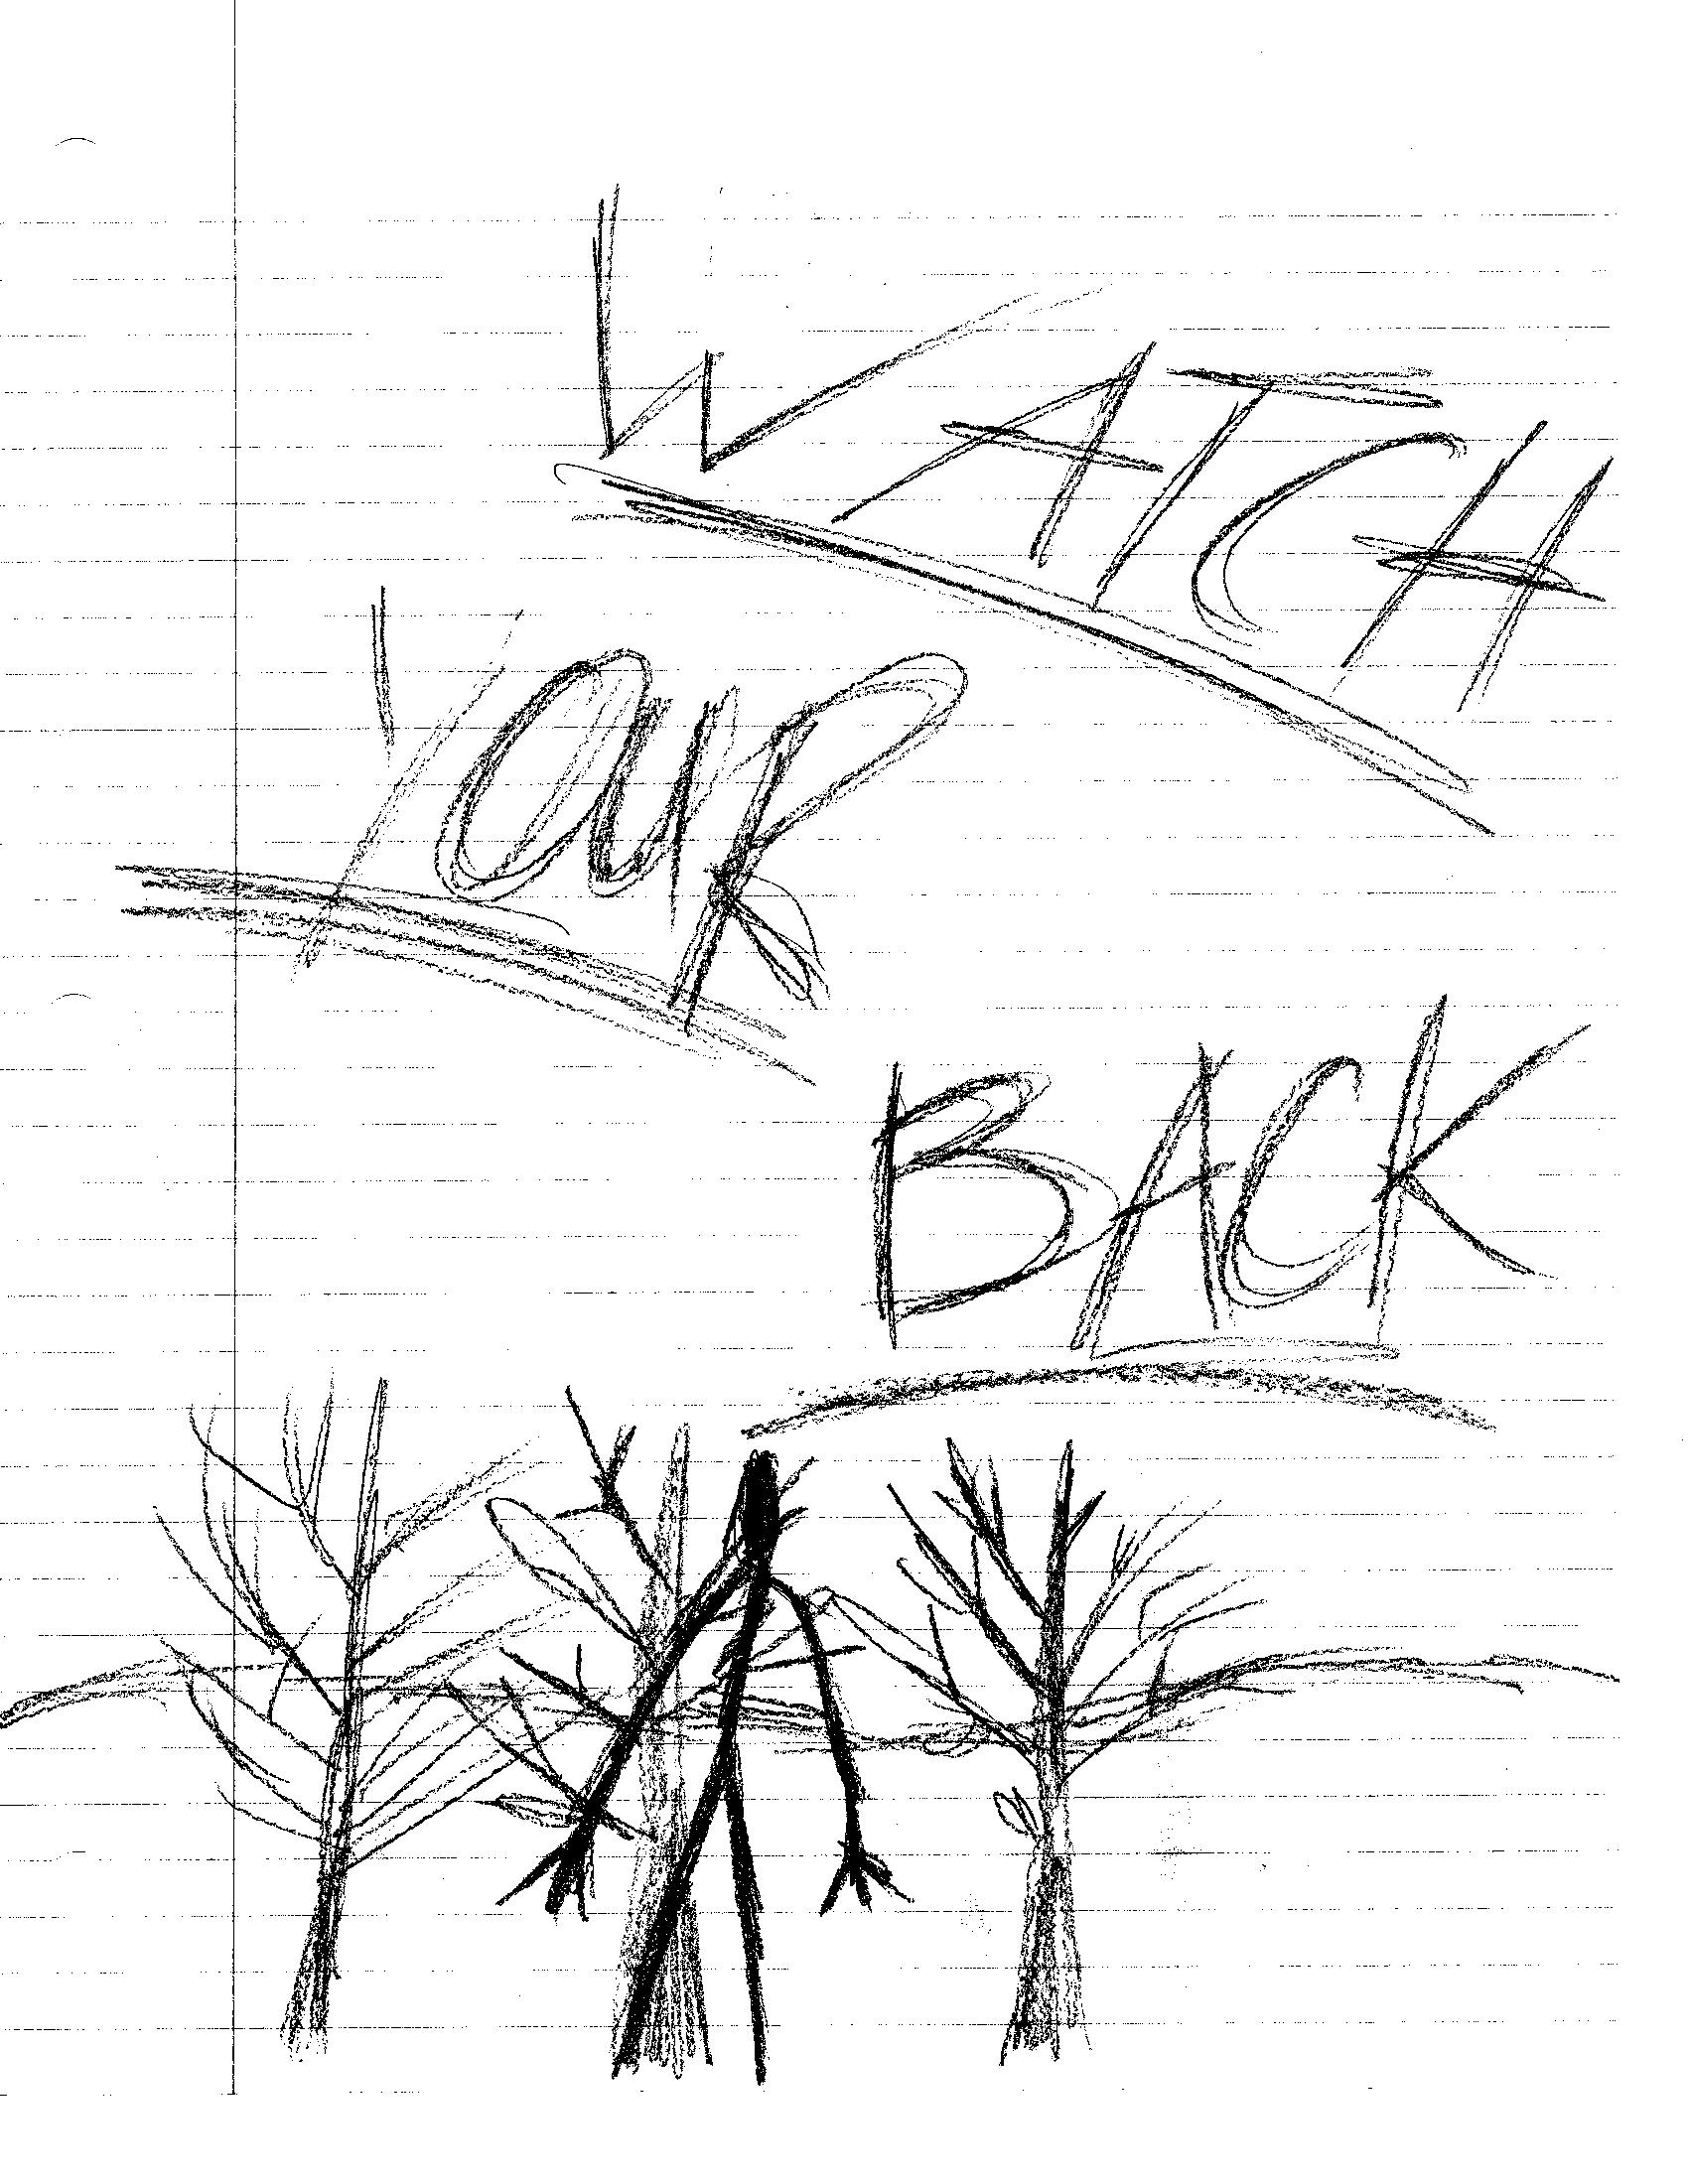 WATCH
YOUR
BACK